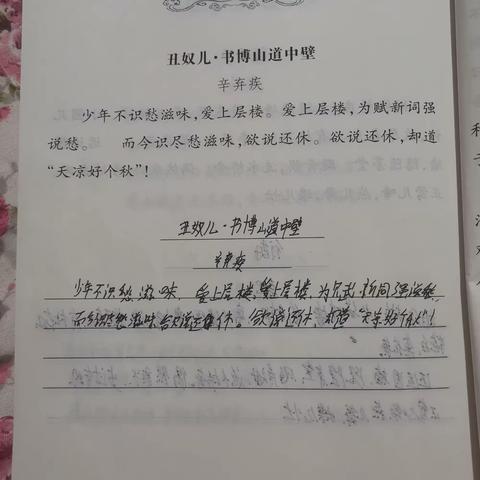 丑奴儿·书博山道中壁
辛弃疾
少年不识愁滋味，爱上层楼。爱上层楼，为赋新词强
说愁。 而今识尽愁滋味，欲说还休。欲说还休，却道
“天凉好个秋”！
丑奴儿·书博山道中壁
辛弃疾
少年不识愁滋味，爱上层楼，爱上层楼，为赋新词强说愁，
而今识尽愁滋味欲说还休。欲说还休，却道"天凉好个秋"！